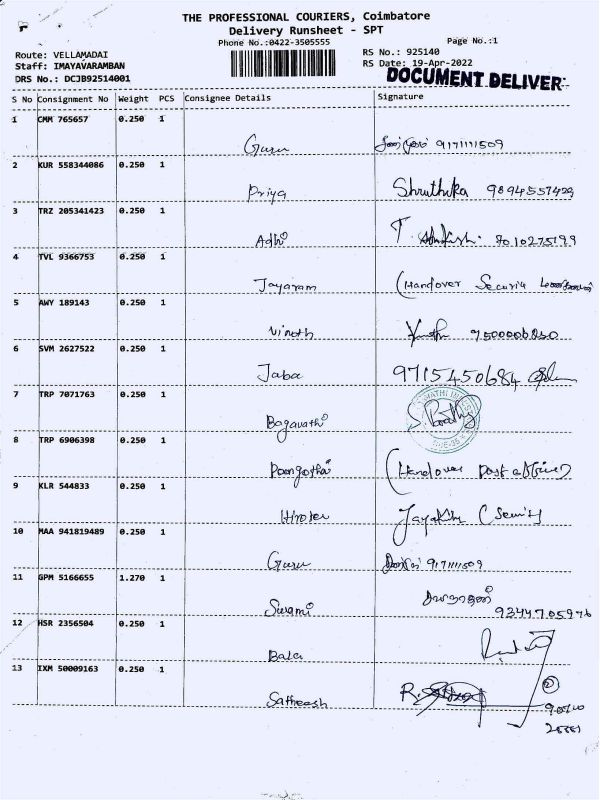 THE PROFESSIONAL COURIERS, Coimbatore
Delivery Runsheet - SPT
Phone No.:0422-3505555
Page No.:1
Route: VELLAMADAI
Staff: IMAYAVARAMBAN
DRS No.: DCJB92514001
RS No.: 925140
RS Date: 19-Apr-2022
DOCUMENT DELIVER
S No Consignment No Weight PCS Consignee Details Signature
1 CMM 765657 0.250 1
Guru 9171111509
2 KUR 558344086 0.250 1
Priya Shruthika 9894557429
3 TRZ 205341423 0.250 1
Adhi T. 7010275199
4 TVL 9366753 0.250 1
Jayaram (Handover Security
5 AWY 189143 0.250 1
Vinoth 9500006850
6 SVM 2627522 0.250 1
Jaba 9715450684
7 TRP 7071763 0.250 1
Bagavathi
8 TRP 6906398 0.250 1
Poongothai (Handover Post office)
9 KLR 544833 0.250 1
10 MAA 941819489 0.250 1
Guru 9171111509
11 GPM 5166655 1.270 1
Swami 9344705976
12 HSR 2356504 0.250 1
Bala
13 IXM 50009163 0.250 1
Satheesh R.